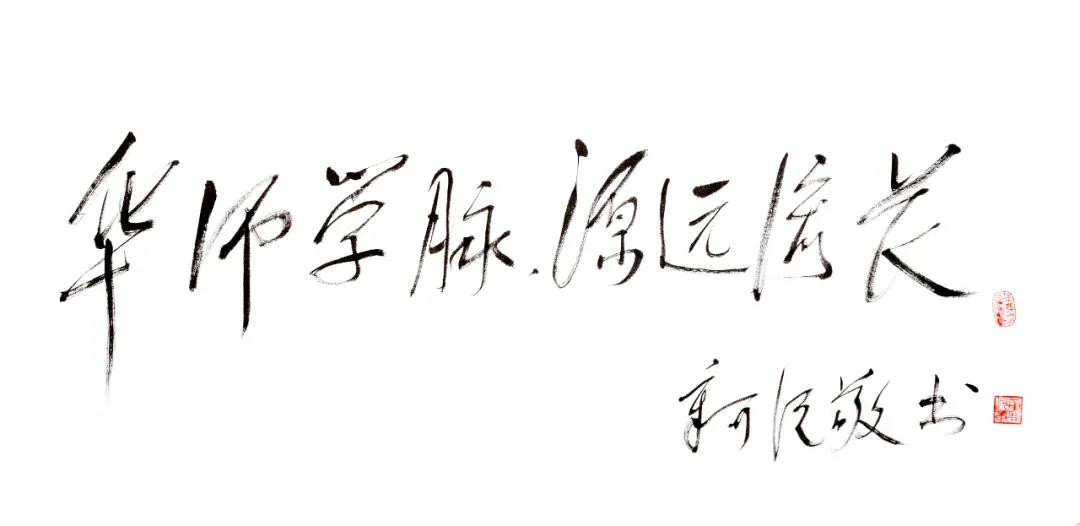 华师学脉、源远流长
敬书